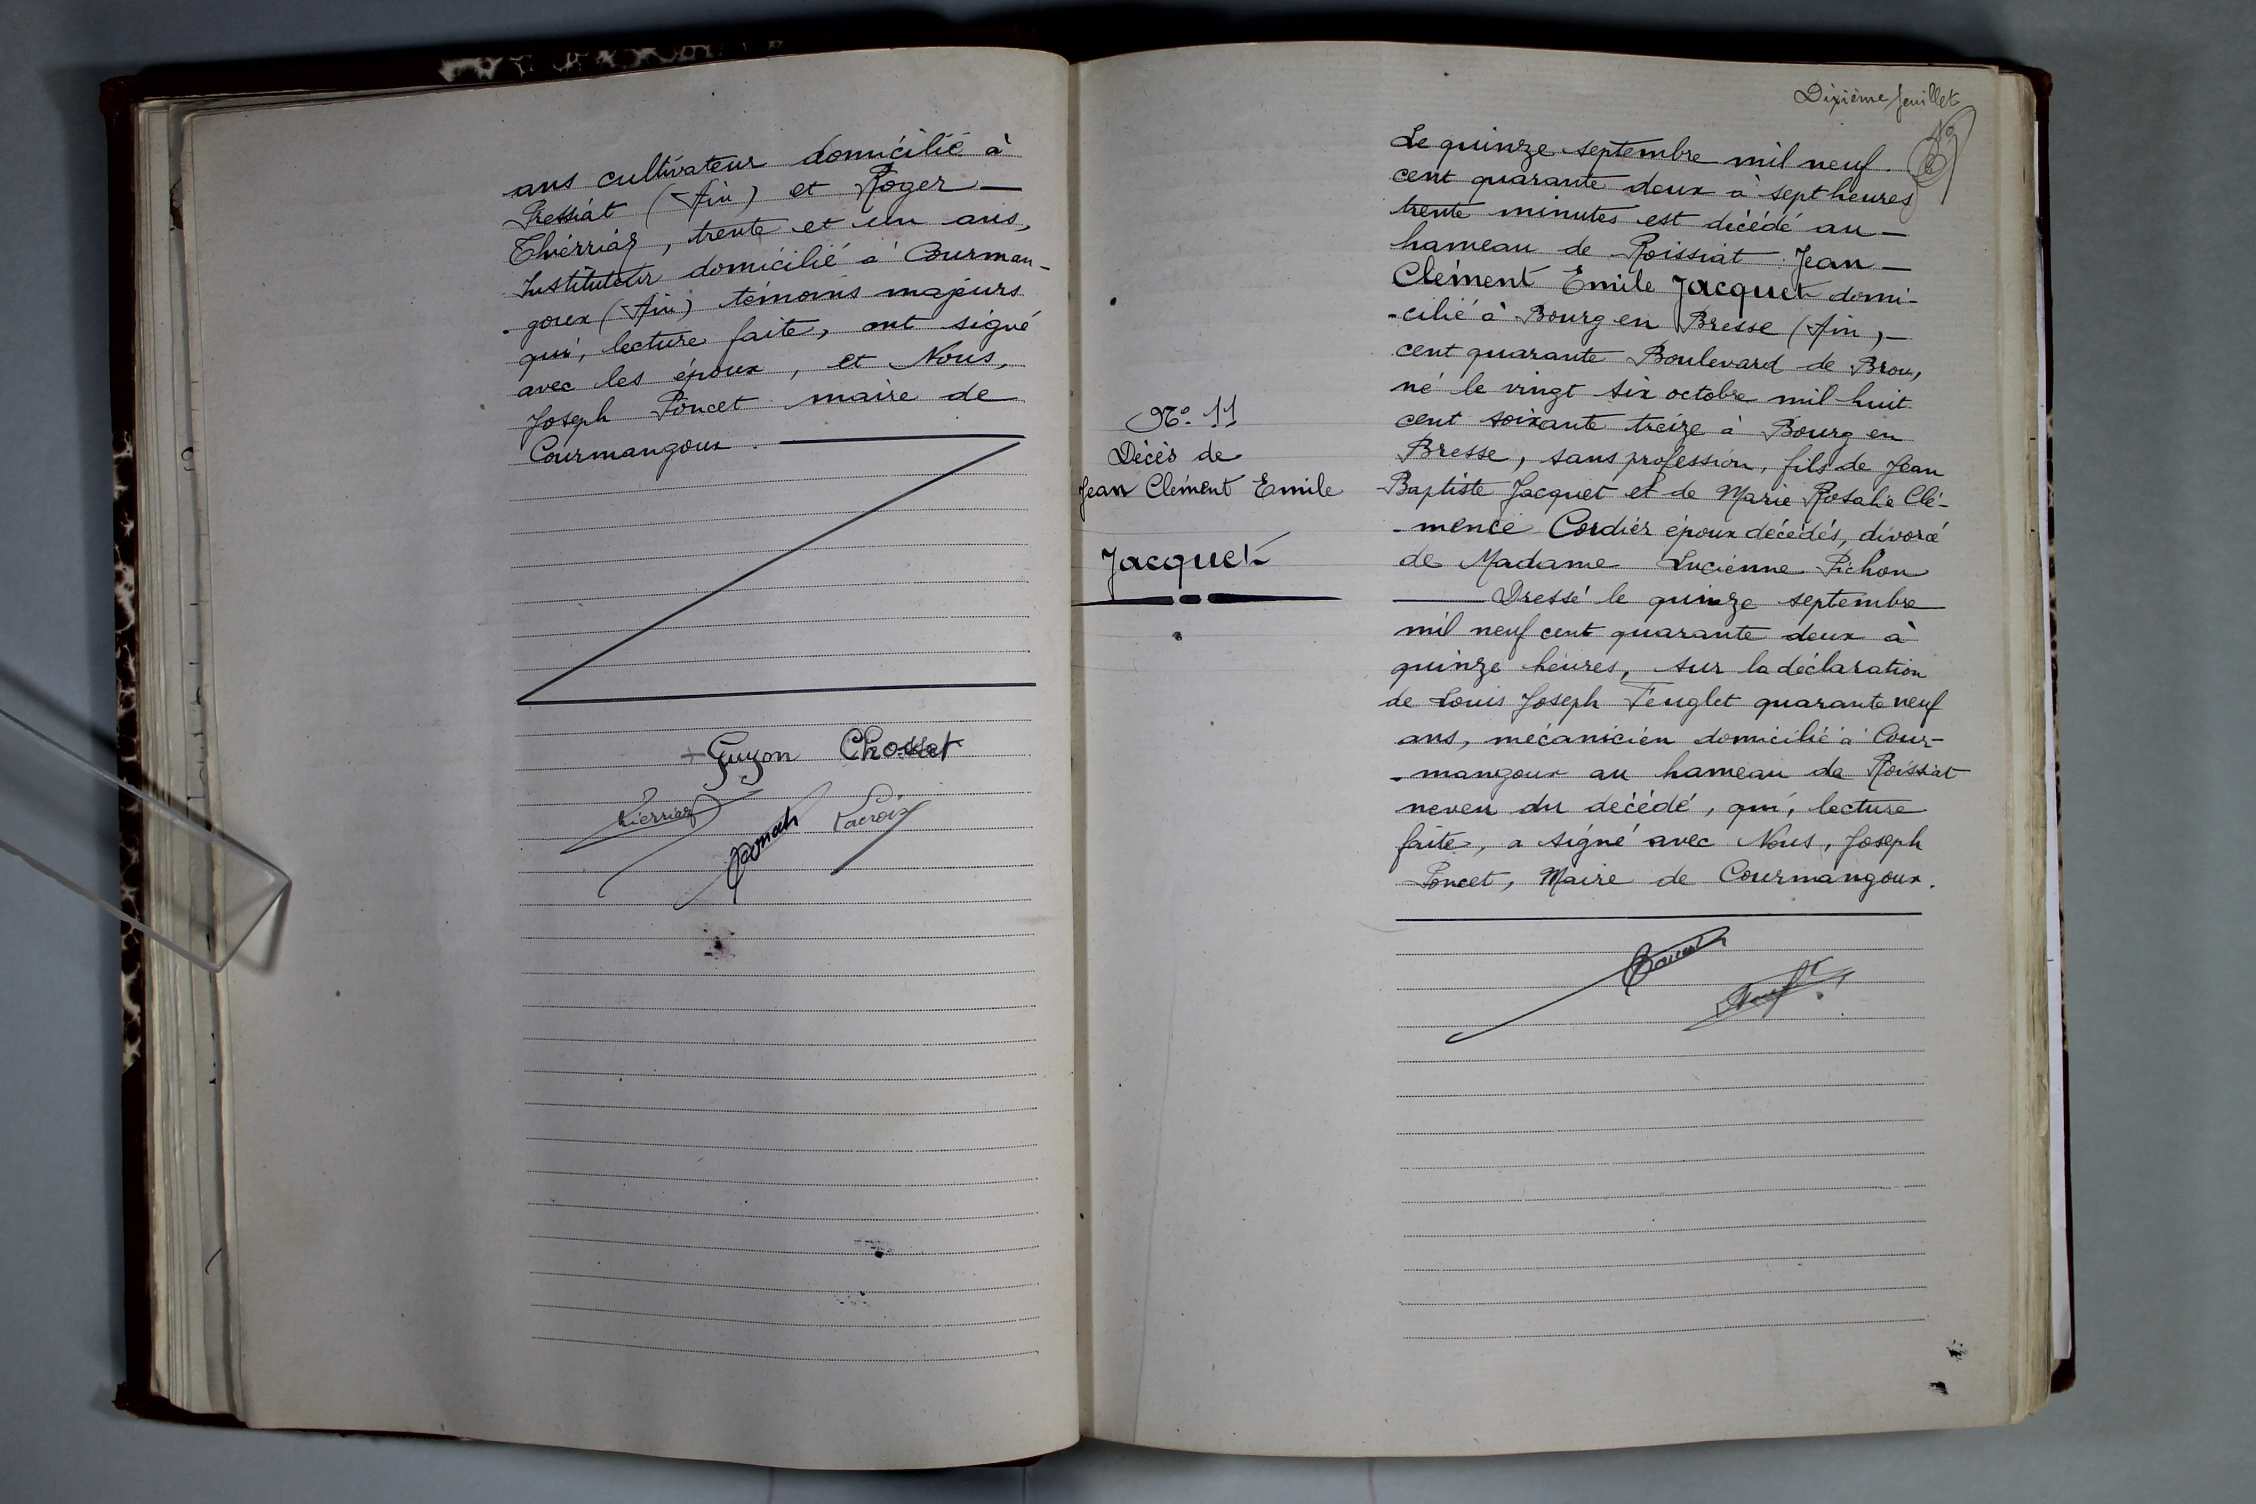 ans cultivateur domicilié à
Pressiat (Ain) et Roger —
Thierriaz, trente et un ans,
Instituteur domicilié à Courman-
-goux (Ain) témoins majeurs
qui, lecture faite, ont signé
avec les époux, et Nous,
Joseph Poncet maire de
Courmangoux.
Guyon Chossat
Thierriaz
Lacroix
Dixième feuillet
N° 11
Décès de
Jean Clément Emile
Jacquet
Le quinze septembre mil neuf
cent quarante deux à sept heures
trente minutes est décédé au —
hameau de Roissiat Jean —
Clément Emile Jacquet domi-
-cilié à Bourg en Bresse (Ain, —
cent quarante Boulevard de Brou,
né le vingt six octobre mil huit
cent soixante treize à Bourg en
Bresse, sans profession, fils de Jean
Baptiste Jacquet et de Marie Rosalie Clé-
-mence Cordier époux décédés, divorcé
de Madame Lucienne Pichon
— Dressé le quinze septembre
mil neuf cent quarante deux à
quinze heures, sur la déclaration
de Louis Joseph Feuglet quarante neuf
ans, mécanicien domicilié à Cour-
-mangoux au hameau de Roissiat
neveu du décédé, qui, lecture
faite, a signé avec Nous, Joseph
Poncet, Maire de Courmangoux.